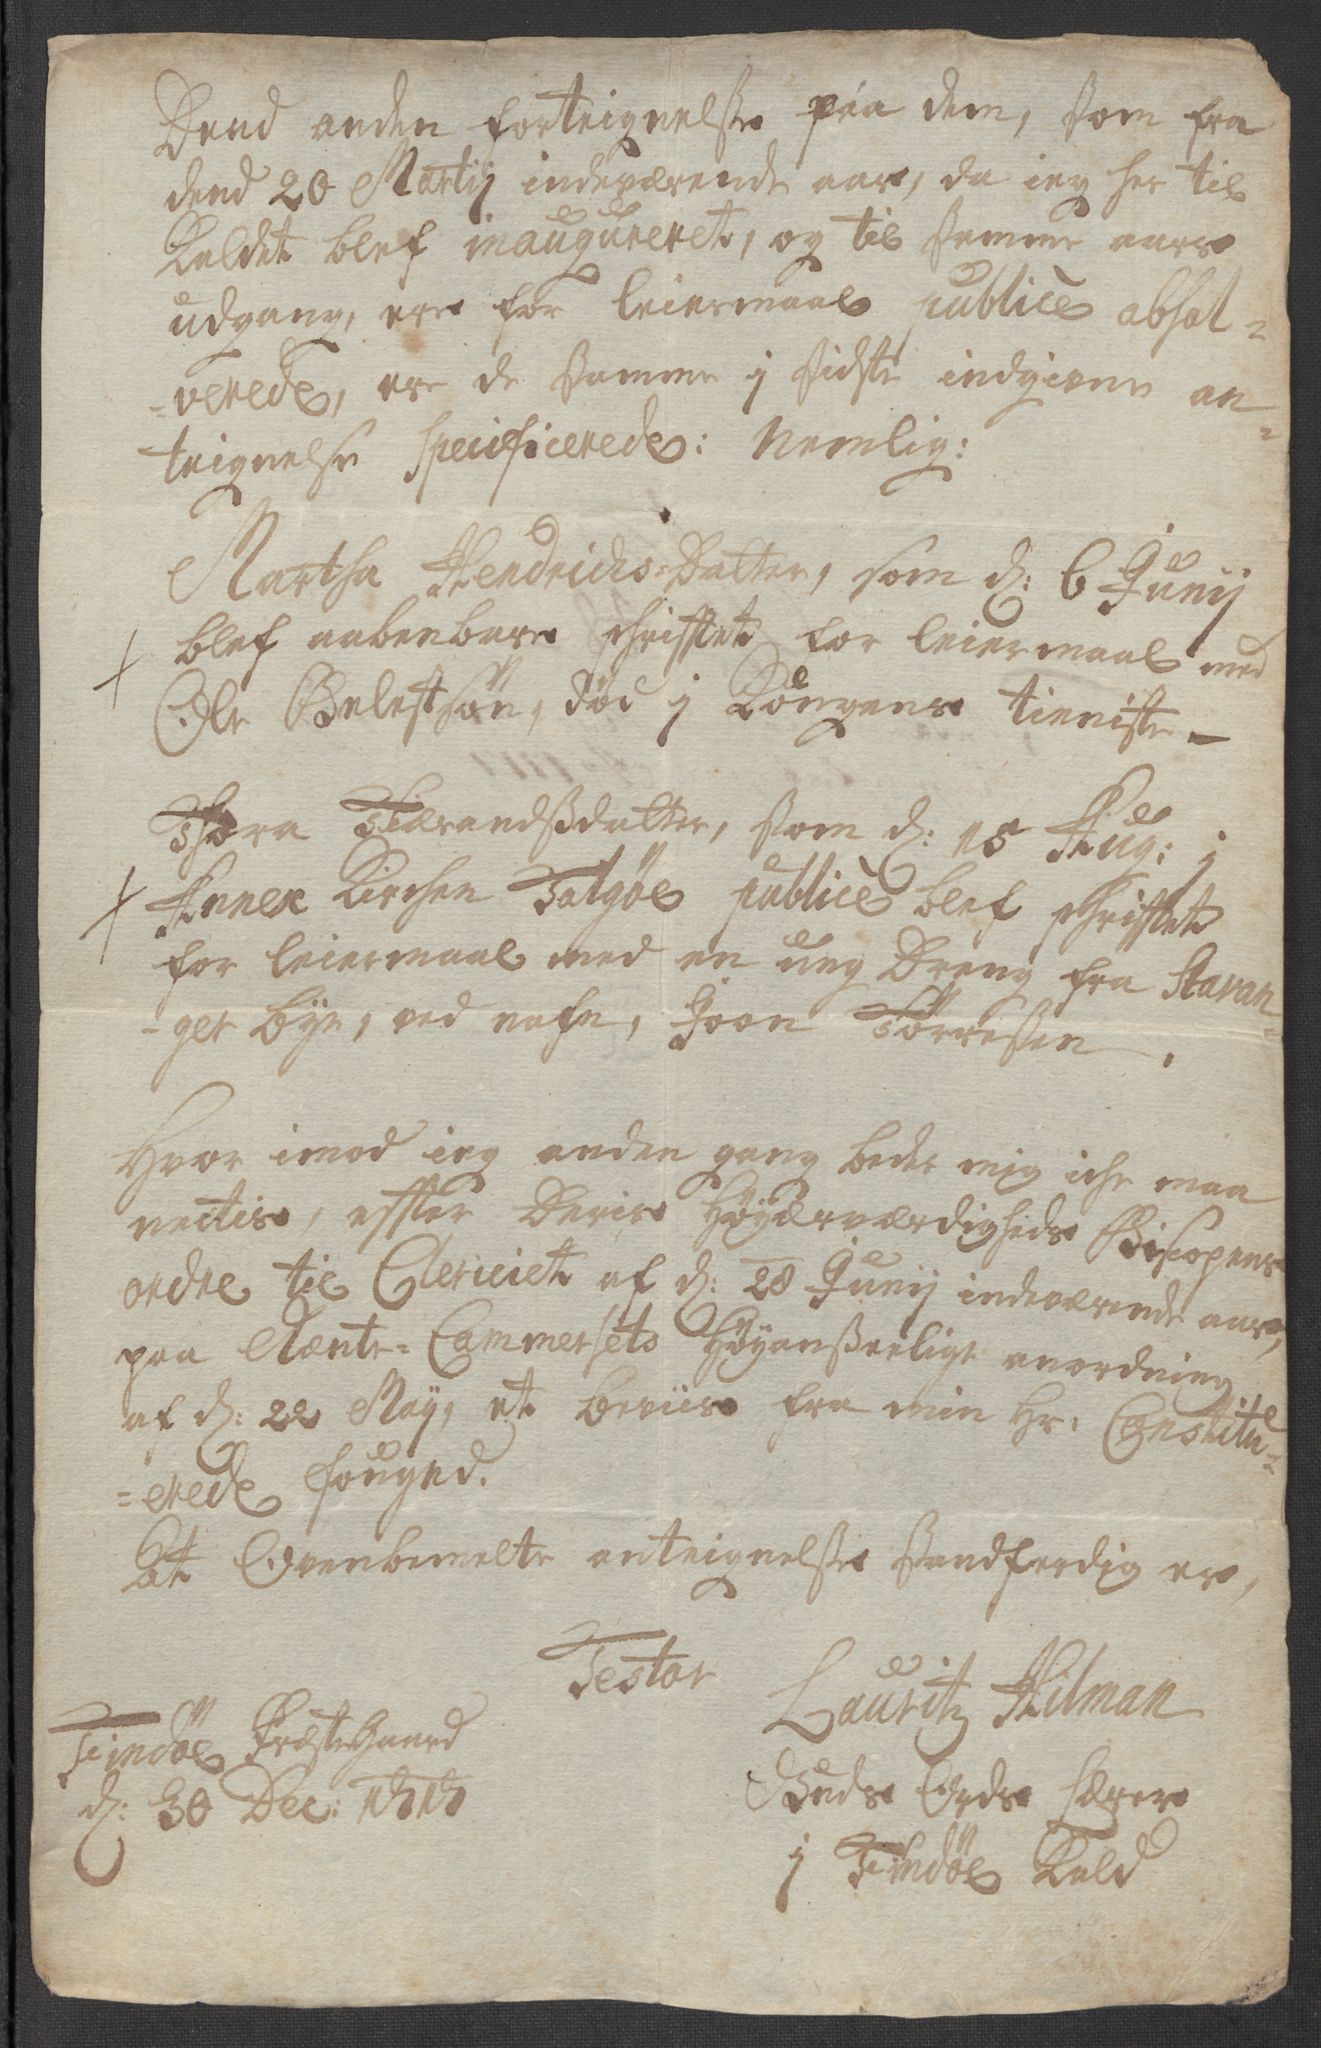 Dend anden forteignelse paa dem, som fra
dend 20 Martij indeværende aar, da ieg her til
Kaldet blef inaugureret, og til samme aars
udgang, ere for leiermaal publicè absol=
=verede, ere de samme j sidste indgivne an=
teignelse specificerede: Nemlig:
Martha Hendrichs-Datter, som d: 6 Junij
blef aabenbare schrifftet for leiermaal med
Ole Belestsøn, død j Kongens tieniste
Thora Tiærandsßdatter, som d: 15 Aug: j
Annex Kirchen Talgøe publicè blef schrifftet
for leiermaal med en ung Dreng fra Stavan=
=ger bye, ved nafn, Joon Törresen.
Hvor imod ieg anden gang beder mig iche maa
nectis, effter Deris Höyærværdigheds Biscopens
ordre til Clericiet af d: 28 Junij indeværende aar,
paa Rænte=Cammersets Höyanseelige anordning
af d: 22 Maÿ, et beviis fra min Hr. Constitu=
=erede fouged.
At Ovenbemelte anteignelse sandferdig er,
Testor
Lauritz Hilman
Guds Ords
j Findöe Kald
Findöe Præstegaard
d: 30 Dec: 1717